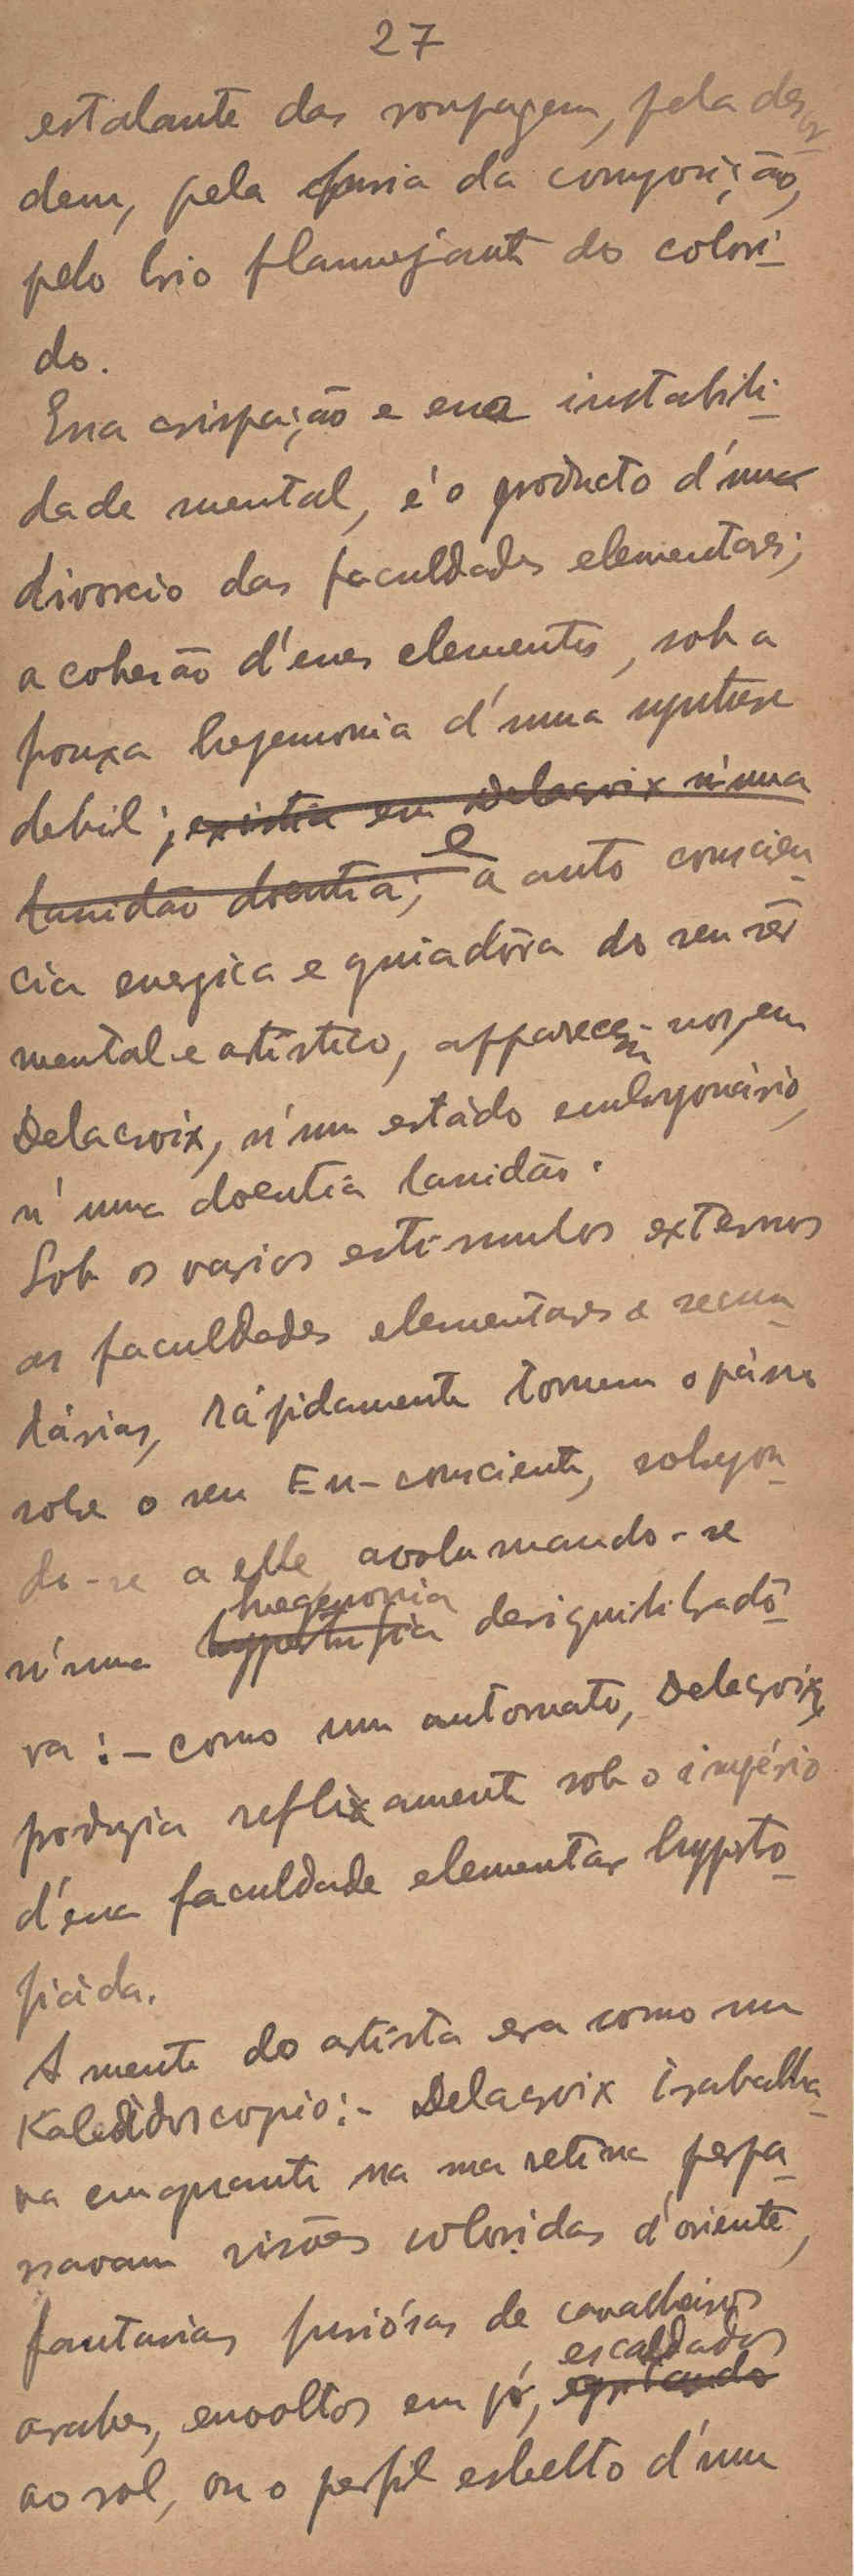 27
estalante das roupagem, pela desor
dem, pela furia da composição,
pelo brio flammejante do colori-
do.
Essa crispação e essa instabili-
dade mental, é o producto d'um
divorcio das faculdades elementares;
a cohesão d'esses elementos, sob a
frouxa hegemonia d'uma synthese
debil; existia em Delacroix n'uma
lassidão doentia; e a auto conscien-
cia energica e guiadôra do seu sêr
mental e artistico, apparecem-nos, em
Delacroix, n'um estádo embryonário,
n'uma doentia lassidão.
Sob os varios estimulos externos
as faculdades elementares e secun-
dárias, rápidamente tomem o passo
sobre o seu Eu-consciente, sobrepon-
do-se a elle, avolumando-se
n'uma hypertrofia hegemonia desiquilibradô-
ra:- como um automato, Delacroix,
produzia reflexamente sob o império
d'essa faculdade elementar hyperto-
fiáda.
A mente do artista era como um
Kaleidoscopio:- Delacroix trabalha-
va emquanto na sua retina perpa-
ssavam visões coloridas d'oriente,
fantasias furiósas de cavalleiros
arabes, envoltos em pó, escaldados
ao sol, ou o perfil esbelto d'um